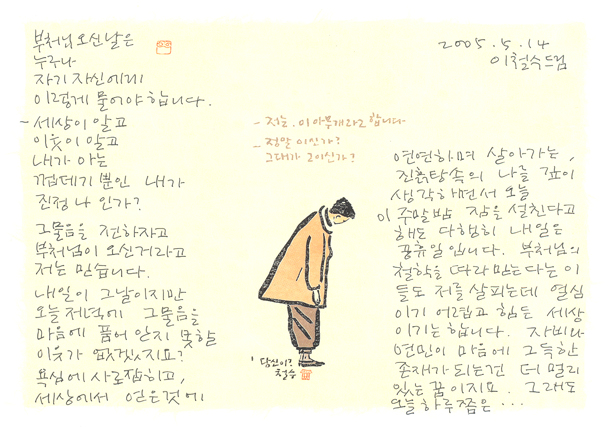 부처님 오신날은
누구나
자기 자신에게
이렇게 물어야 합니다.
- 세상이 알고
이웃이 알고
내가 아는
껍데기 뿐인 내가
진정 나 인가?
그 물음을 전하자고
부처님이 오신거라고
저는 믿습니다.
내일이 그날이지만
오늘 저녁에 그 물음을
마음에 품어 안지 못할
이웃가 있겠지요?
욕심에 사로잡히고,
세상에서 얻은것에
- 저는, 이 아무개라고 합니다
- 정말 이신가?
그대가 그이신가?
당신이?
철수
2005. 5. 14
이철수드림
연연하며 살아가는,
진흙탕속의 나를 깊이
생각하면서 오늘
이 주말밤 잠을 설친다고
해도 다행히 내일은
공휴일입니다. 부처님의
철학을 따라 믿는다는 이
들도 저를 살피는데 열심
이기 어렵고 힘든 세상
이기는 합니다. 자비나
연민이 마음에 그득한
존재가 되는건 더 멀리
있는 꿈이지요. 그래도
오늘 하루쯤은 ···